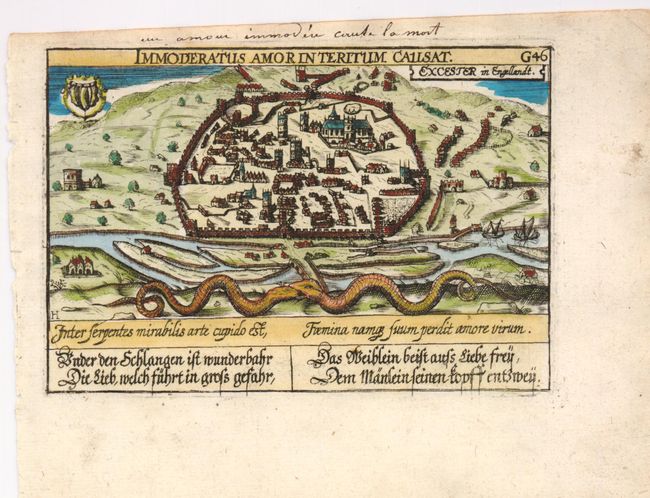 un amour immodéré cause la mort
IMMODERATUS AMOR INTERITUM CAUSAT.
G46
EXCESTER in Engellandt.
H
Inter serpentes mirabilis arte cupido est,
Fœmina namqꝫ suum perdit amore virum.
Under den Schlangen ist wunderbahr
Die Lieb, welch führt in gross gefahr,
Das Weiblein beist auss Liebe frey,
Dem Mänlein seinen kopff entzwey.